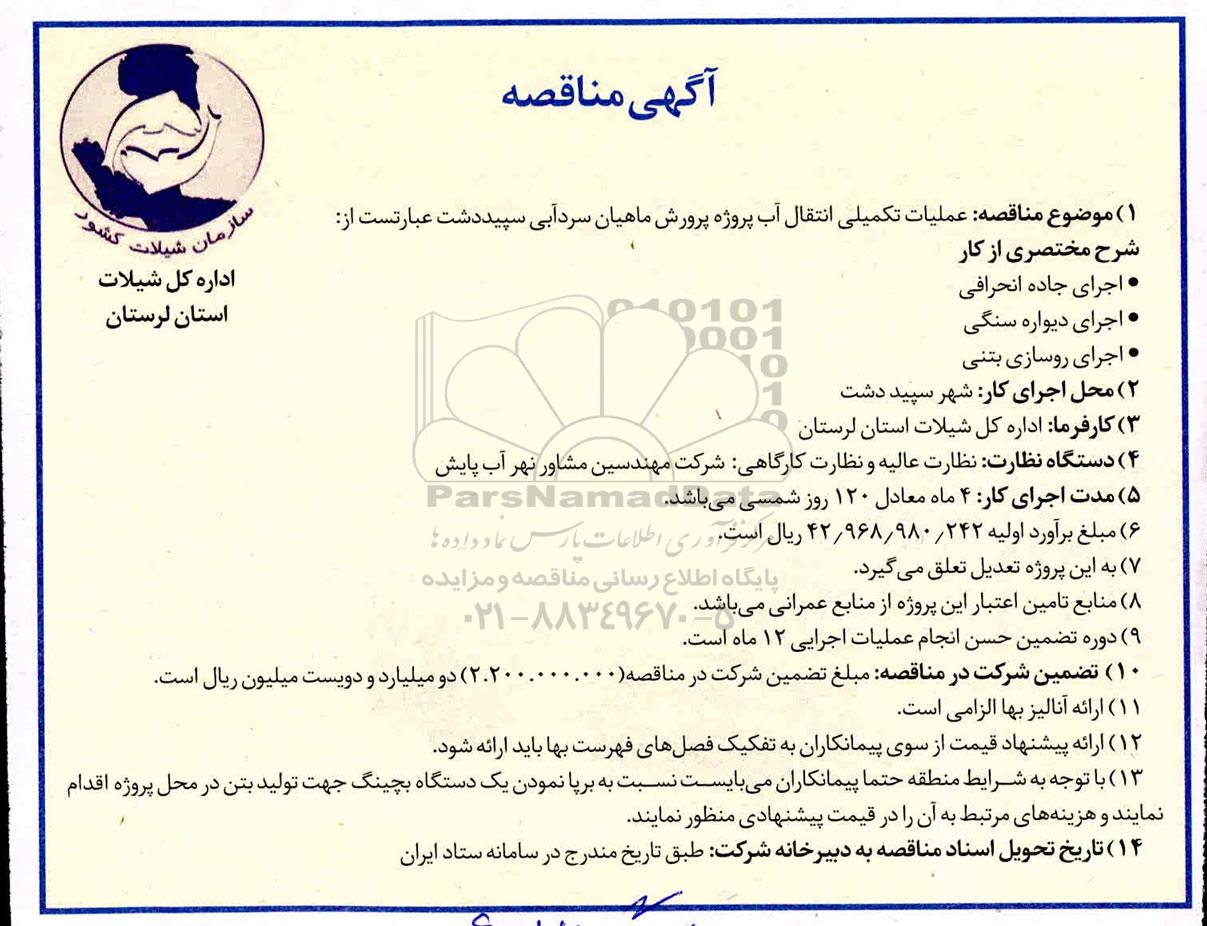 آگهی مناقصه
سازمان شیلات کشور
اداره کل شیلات
استان لرستان
۱) موضوع مناقصه: عملیات تکمیلی انتقال آب پروژه پرورش ماهیان سردآبی سپیددشت عبارتست از:
شرح مختصری از کار
• اجرای جاده انحرافی
• اجرای دیواره سنگی
• اجرای روسازی بتنی
۲) محل اجرای کار: شهر سپید دشت
۳) کارفرما: اداره کل شیلات استان لرستان
۴) دستگاه نظارت: نظارت عالیه و نظارت کارگاهی: شرکت مهندسین مشاور نهر آب پایش
۵) مدت اجرای کار: ۴ ماه معادل ۱۲۰ روز شمسی می‌باشد.
۶) مبلغ برآورد اولیه ۴۲٫۹۶۸٫۹۸۰٫۲۴۲ ریال است.
۷) به این پروژه تعدیل تعلق می‌گیرد.
۸) منابع تامین اعتبار این پروژه از منابع عمرانی می‌باشد.
۹) دوره تضمین حسن انجام عملیات اجرایی ۱۲ ماه است.
۱۰) تضمین شرکت در مناقصه: مبلغ تضمین شرکت در مناقصه(۲.۲۰۰.۰۰۰.۰۰۰) دو میلیارد و دویست میلیون ریال است.
۱۱) ارائه آنالیز بها الزامی است.
۱۲) ارائه پیشنهاد قیمت از سوی پیمانکاران به تفکیک فصل‌های فهرست بها باید ارائه شود.
۱۳) با توجه به شرایط منطقه حتما پیمانکاران می‌بایست نسبت به برپا نمودن یک دستگاه بچینگ جهت تولید بتن در محل پروژه اقدام
نمایند و هزینه‌های مرتبط به آن را در قیمت پیشنهادی منظور نمایند.
۱۴) تاریخ تحویل اسناد مناقصه به دبیرخانه شرکت: طبق تاریخ مندرج در سامانه ستاد ایران
ParsNamadData
مرکز فرآوری اطلاعات پارس نماد داده ها
پایگاه اطلاع رسانی مناقصه و مزایده
۰۲۱-۸۸۳۴۹۶۷۰-۵